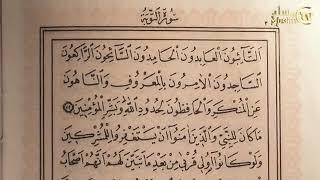 سُورَةُ التَّوْبَةِ
التَّائِبُونَ الْعَابِدُونَ الْحَامِدُونَ السَّائِحُونَ الرَّاكِعُونَ
السَّاجِدُونَ الْآمِرُونَ بِالْمَعْرُوفِ وَالنَّاهُونَ
عَنِ الْمُنْكَرِ وَالْحَافِظُونَ لِحُدُودِ اللَّهِ وَبَشِّرِ الْمُؤْمِنِينَ
مَا كَانَ لِلنَّبِيِّ وَالَّذِينَ آمَنُوا أَنْ يَسْتَغْفِرُوا لِلْمُشْرِكِينَ
وَلَوْ كَانُوا أُولِي قُرْبَى مِنْ بَعْدِ مَا تَبَيَّنَ لَهُمْ أَنَّهُمْ أَصْحَابُ